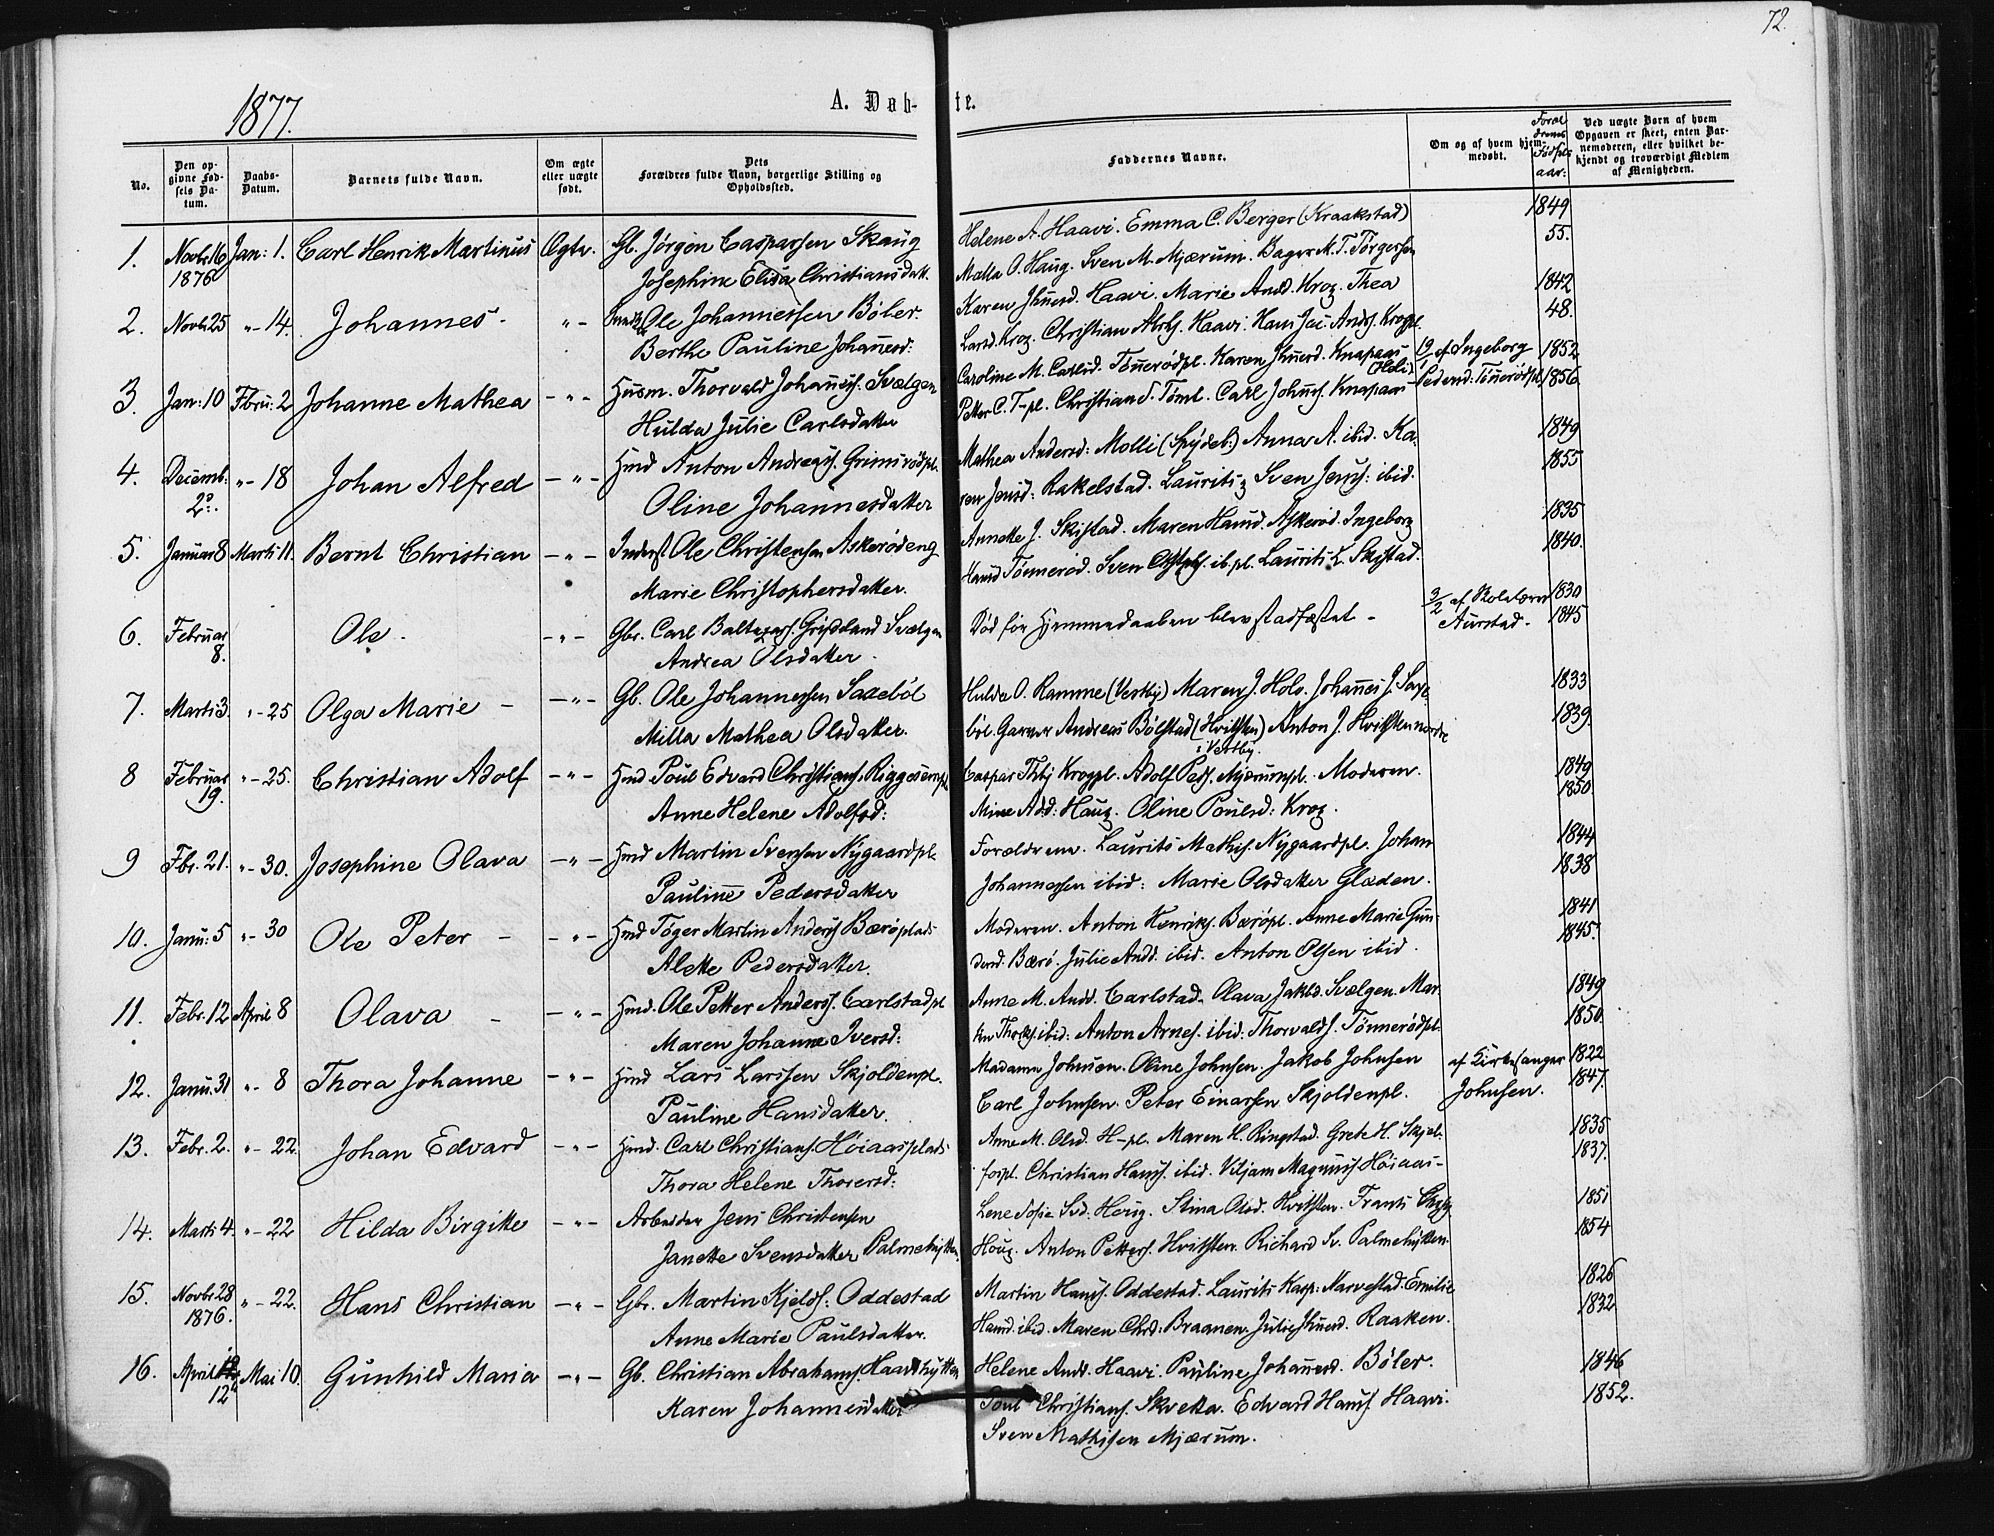 72.
1877.
A. Døb-te.
No.
Den opgivne Fødsels Datum.
Daabs-Datum.
Barnets fulde Navn.
Om ægte eller uægte født.
Dets Forældres fulde Navn, borgerlige Stilling og Opholdssted.
Faddernes Navne.
Om og af hvem hjemmedøbt.
Forældrenes Fødselsaar:
Ved uægte Børn af hvem Opgaven er skeet, enten Barnemoderen, eller hvilket bekjendt og troværdigt Medlem af Menigheden.
1. Novbr 16 1876 Jan: 1. Carl Henrik Martinus Ægte. Gb. Jørgen Caspersen Skaug
Josephine Elisa Christiansdatt.
Helene A. Haavi. Emma C. Berger (Kraakstad) 1849
Matla O. Haug. Sven M. Mjærum. Bager M. T. Tørgersen 55.
2. Novbr 25 "- 14. Johannes - " - Ole Johannessen Bøler.
Berthe Pauline Johannesd:
Karen Jhnesd. Haavi. Marie Andd. Krog. Thea 1842
Larsd. Krog. Christian Abrhs. Haavi. Hans Jac. Ands. Krogpl. 48.
3. Jan: 10 Fbru: 2 Johanne Mathea - " - Husm. Thorvald Johaness. Svælgen
Hulda Julie Carlsdatter
Caroline M. Carlsd. Tønerødpl. Karen Jhnesd. Knapaas af Ingeborg 1852
Petter C. T-pl. Christian S. Toml. Carl Johnss. Knapaas Pedersd: Tønerødpl. 1856
4. Decemb: 2. "- 18 Johan Alfred - " - Hmd Anton Andreass. Grimsrødpl.
Oline Johannesdatter
Mathea Andersd: Molli (Spydeb:) Anna A. ibid. Ka- 1849
ren Jensd: Rakelstad. Lauritz Sven Jenss: ibid. 1855
5. Januar 8 Marts 11. Bernt Christian - " - Inderst Ole Christensen Askerødeng
Marie Christophersdatter.
Annette J. Skistad. Maren Hansd. Askerød. Ingeborg 1835
Hansd Tønnerød. Sven ib. pl. Laurits L. Skistad. 1840.
6. Februar 8. Ole. - " - Gbr. Carl Baltzars. Gridsland Svælgen
Andrea Olsdatter.
Død før Hjemmedaaben blev stadfæstet - 3/2 af 1830
Aurstad - 1845
7. Marts 3. "- 25 Olga Marie - - " - Gb. Ole Johannessen Saxebøl
Milla Mathea Olsdatter.
Hulda O. Ramme (Vestby) Maren J. Holo. Johannes J. Saxe- 1833
bøl. Garver Andreas Bølstad (Hvitsten) Anton J. Hvitsten nordre 1839.
i Vestby.
8 Februar 19. "- 25. Christian Adolf - " - Hmd Poul Edvard Christians. Riggesumpl.
Anne Helene Adolfsd:
Caspar Thbj Krogpl. Adolf Peds. Mjærumpl. Moderen. 1849
Mine Add: Haug. Oline Poulsd: Krog. 1850
9 Fbr. 21. "- 30. Josephine Olava - " - Hmd Martin Svensen Nygaardpl.
Pauline Pedersdatter
Forældrene. Laurits Maths. Nygaardpl. Johan 1844
Johannessen ibid: Marie Olsdatter Glæden. 1838
10. Janu: 5 "- 30 Ole Peter - - " - Hmd Tøger Martin Anderss Bærøplads
Alette Pedersdatter.
Moderen. Anton Henriks. Bærøpl. Anne Marie Gun- 1841
dersd. Bærø. Julie Andd. ibid. Anton Olsen ibid. 1845.
11. Febr. 12 April 8 Olava - - " - Hmd. Ole Petter Anderss. Carlstadpl
Maren Johanne Iversd:
Anne M. Andd. Carlstad. Olava Jakbd. Svælgen. Mar- 1849
tin Thorks. ibid: Anton Arnes. ibid: Thorvalds. Tønnerødpl. 1850.
12. Janu. 31 "- 8 Thora Johanne - " - Hmd Lars Larssen Skjoldenpl.
Pauline Hansdatter.
Madame Johnsen. Oline Johnsen. Jakob Johnsen af Kirkesanger 1822
Carl Johnsen. Peter Einarsen Skjoldenpl. Johnsen. 1847.
13. Febr. 2. "- 22. Johan Edvard - " - Hmd. Carl Christians. Høiaasplads
Thora Helene Thorersd:
Anne M. Olsd. H-pl. Maren H. Ringstad. Grete H. Skjel- 1835
fospl. Christian Hanss. ibid. Viljam Magnuss Høiaas- 1837.
14. Marts 4. "- 22 Hilda Birgitte - " - Arbeider Jens Christensen
Janette Svensdatter Palmehytten.
Lene Sofie Svd. Houg. Stina Olsd. Hvitsten. Frants 1851
Houg. Anton Petters. Hvitsten. Richard Sv. Palmehytten. 1854
15. Novbr 28 1876. "- 22. Hans Christian - " - Gbr. Martin Kjelds: Oddestad
Anne Marie Paulsdatter.
Martin Hanss. Oddestad. Laurits Kasp: Narvestad. Emilie 1826
Hansd. ibid. Maren Chrd: Braanen. Julie Jhnesd. Raaken. 1832
16. April 12te Mai 10. Gunhild Maria - " - Gb. Christian Abrahams. Haavihytten
Karen Johannesdatter
Helene Andd. Haavi. Pauline Johannesd. Bøler. 1846
Poul Christians. Skretta. Edvard Hanss Haavi. 1852.
Sven Mathisen Mjærum.